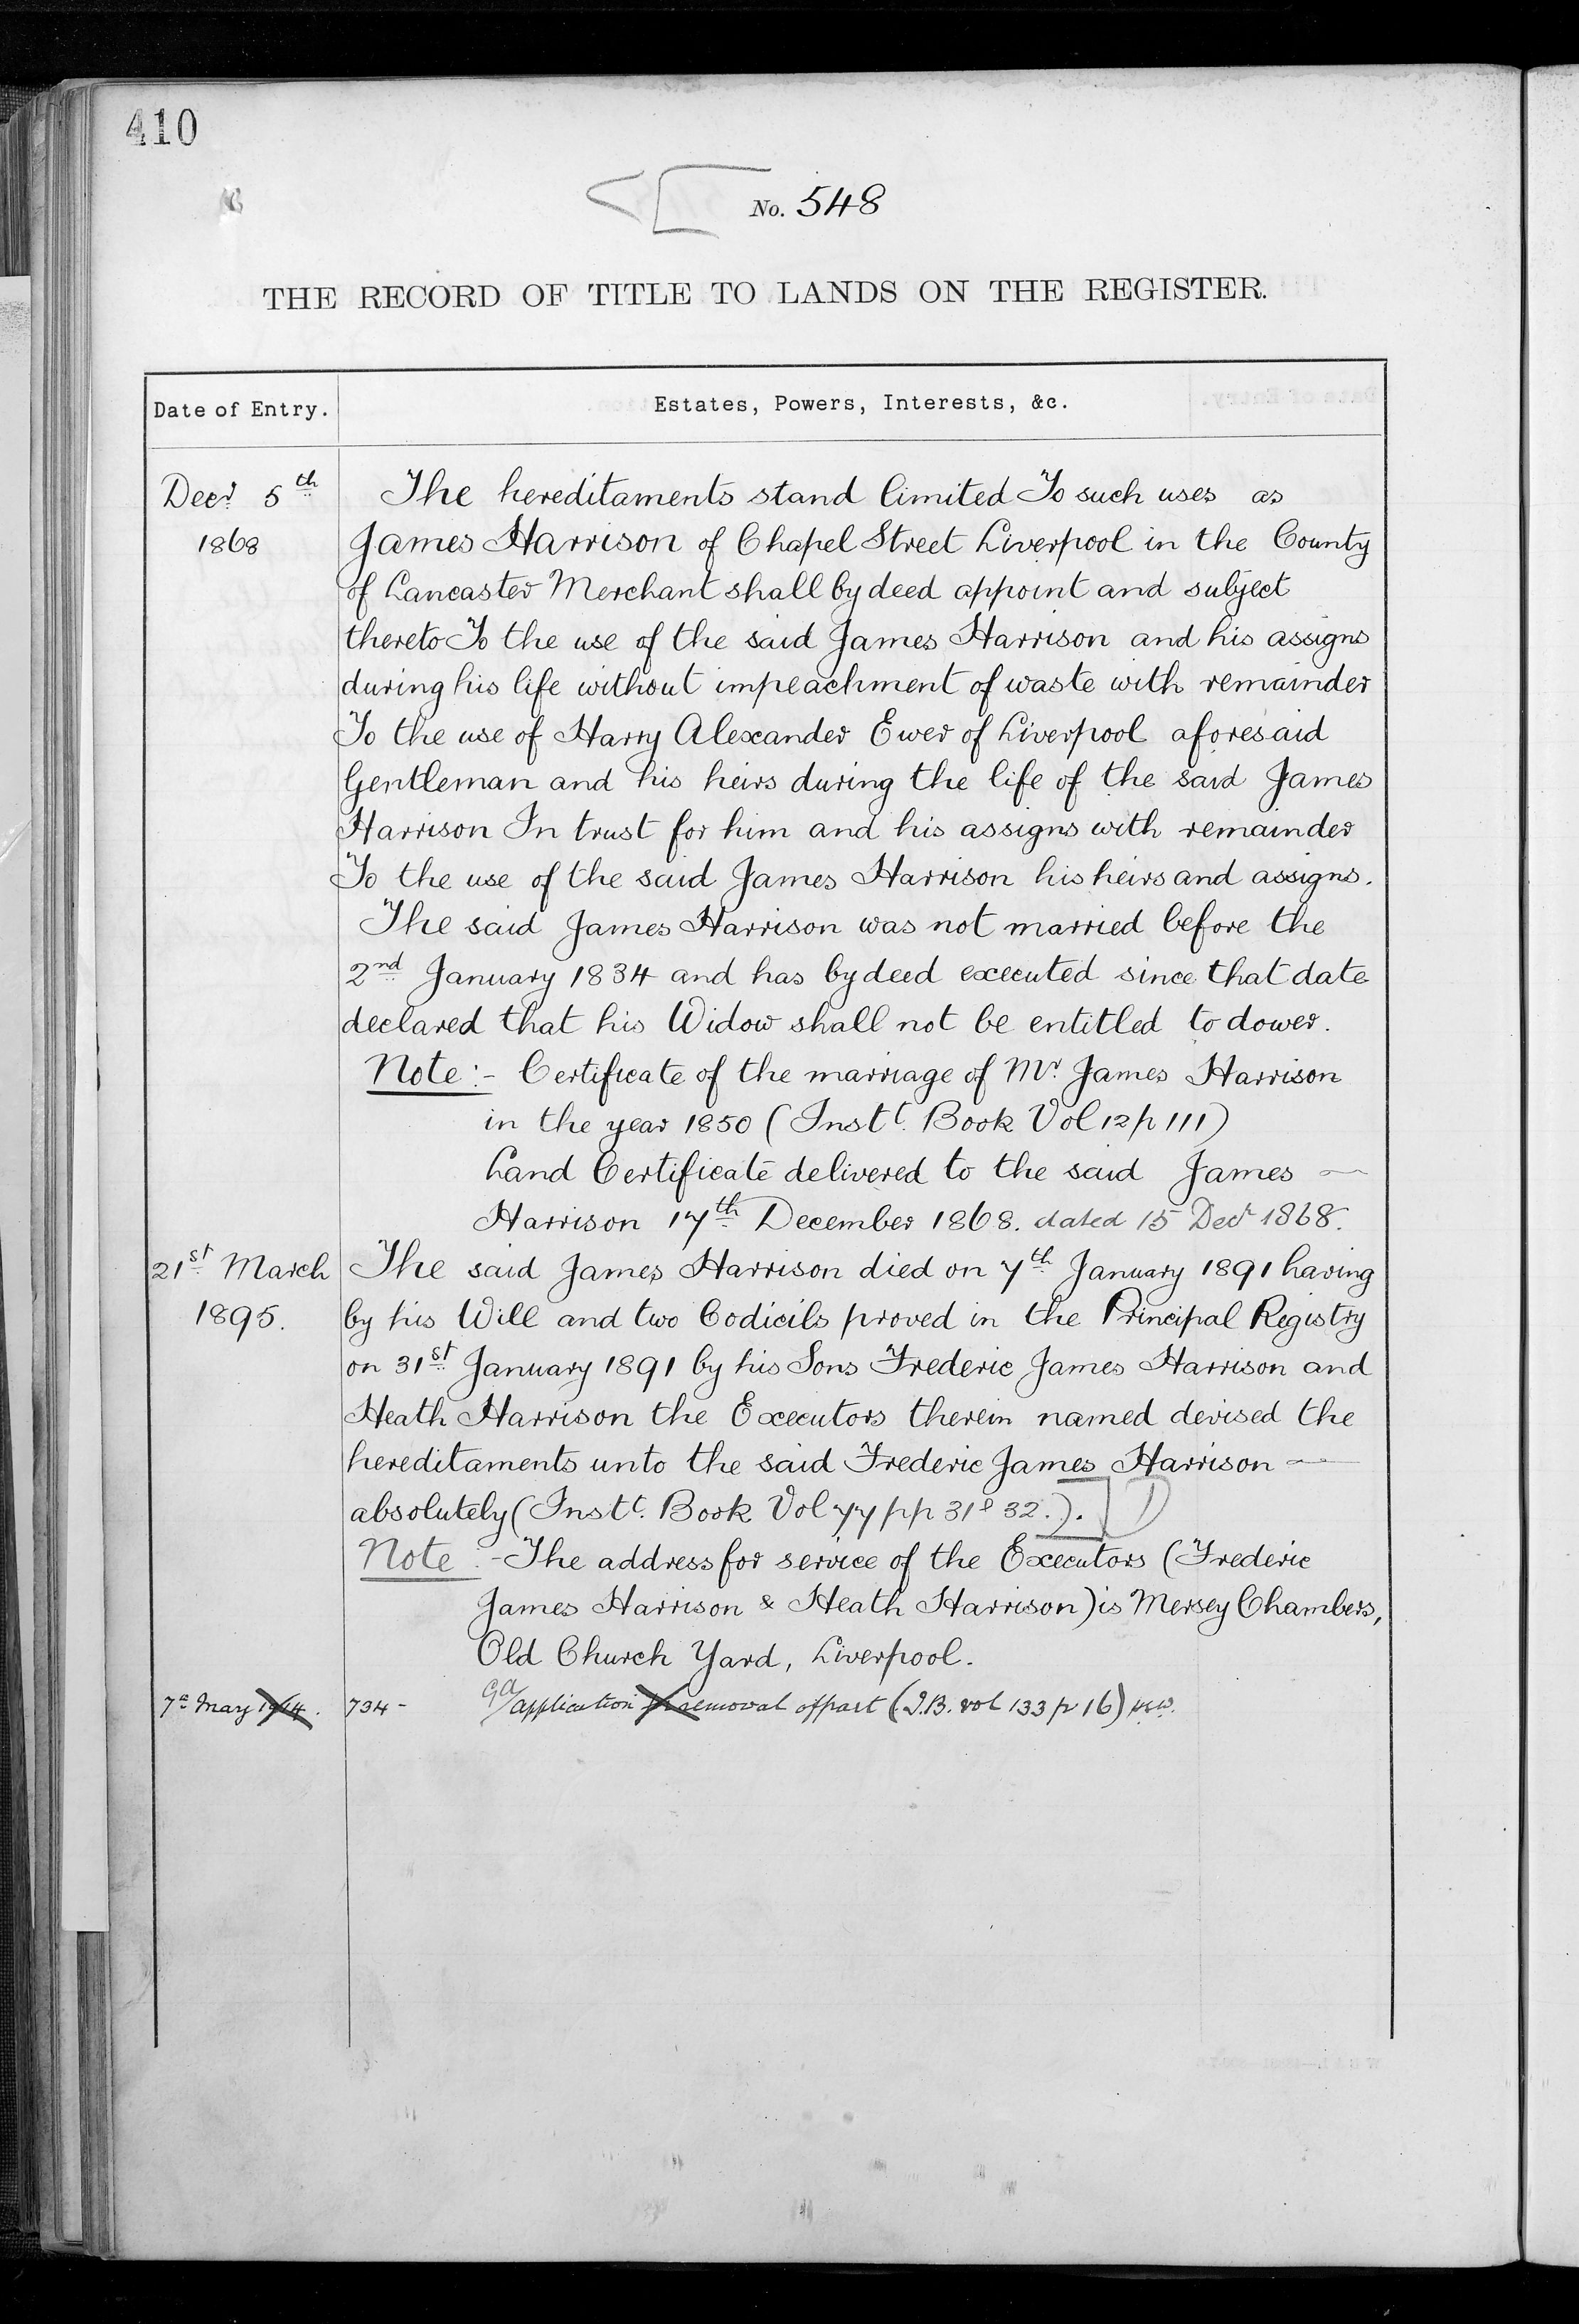 410
No. 548
THE RECORD OF TITLE TO LANDS ON THE REGISTER.
Date of Entry.
Estates, Powers, Interests, &c.
Decr 5th
1868
The hereditaments stand limited To such uses as
James Harrison of Chapel Street Liverpool in the County
of Lancaster Merchant shall by deed appoint and subject
thereto To the use of the said James Harrison and his assigns
during his life without impeachment of waste with remainder
To the use of Harry Alexander Ewer of Liverpool aforesaid
Gentleman and his heirs during the life of the said James
Harrison In trust for him and his assigns with remainder
To the use of the said James Harrison his heirs and assigns.
The said James Harrison was not married before the
2nd January 1834 and has by deed executed since that date
declared that his Widow shall not be entitled to dower.
Note:- Certificate of the marriage of Mr. James Harrison
in the year 1850 (Instt. Book Vol 12 p 111)
Land Certificate delivered to the said James
Harrison 17th December 1868. dated 15 Decr 1868.
21st March
1895.
The said James Harrison died on 7th January 1891 having
by his Will and two Codicils proved in the Principal Registry
on 31st January 1891 by his Sons Frederic James Harrison and
Heath Harrison the Executors therein named devised the
hereditaments unto the said Frederic James Harrison
absolutely (Instt. Book Vol 77 pp 31 & 32.).
Note:- The address for service of the Executors (Frederic
James Harrison & Heath Harrison) is Mersey Chambers,
Old Church Yard, Liverpool.
7th May 1914. 734- application for removal of part (I.B. vol 133 p 16)